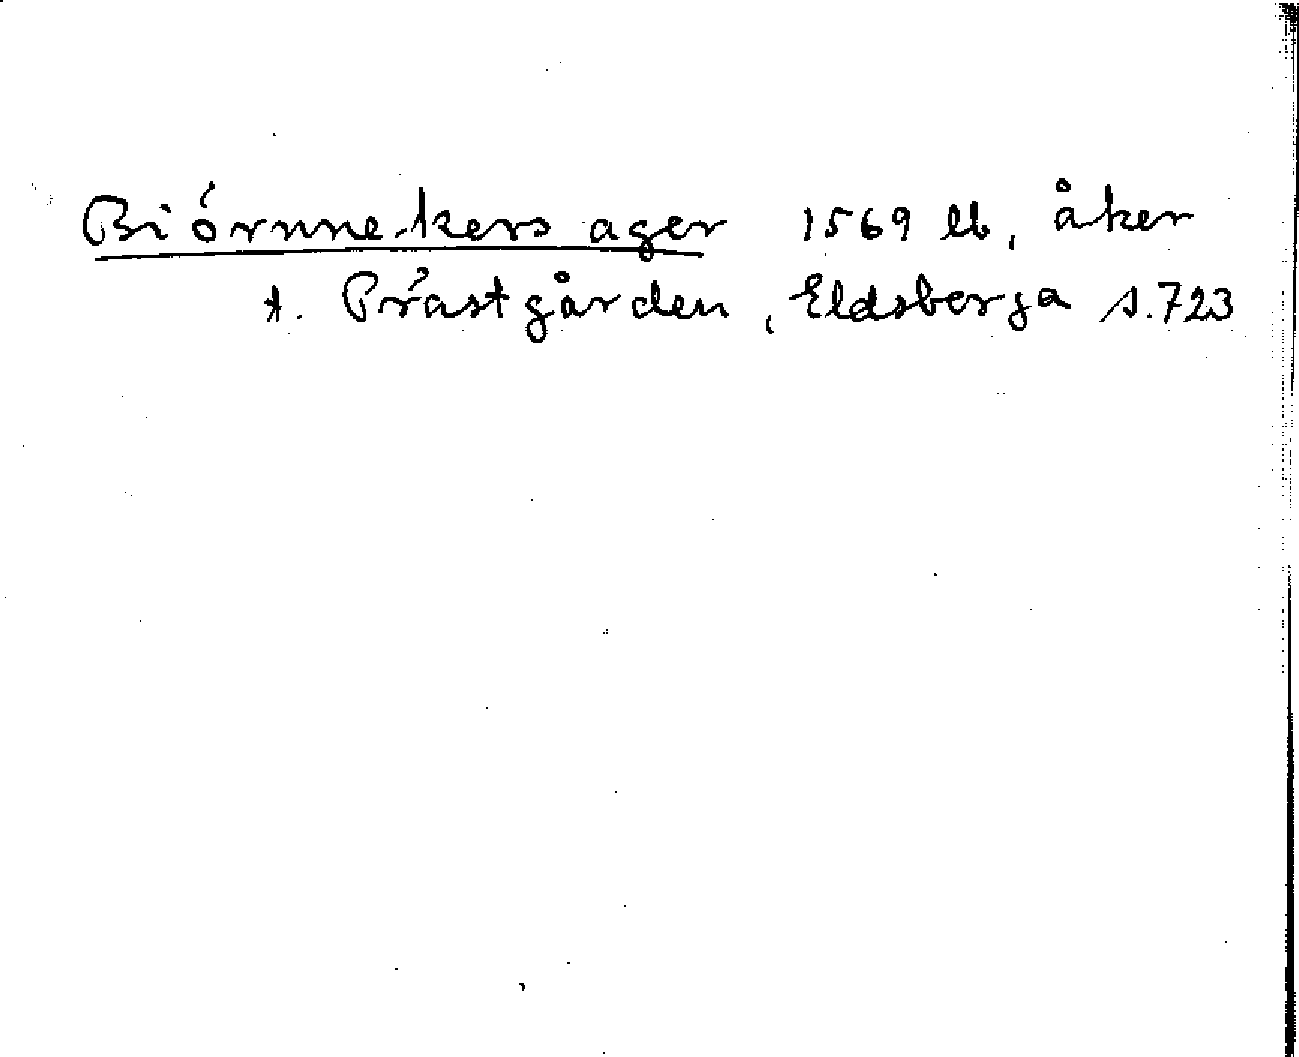 Biórnne kers ager 1569 lb, åker
t. Prästgården, Eldsberga s. 723